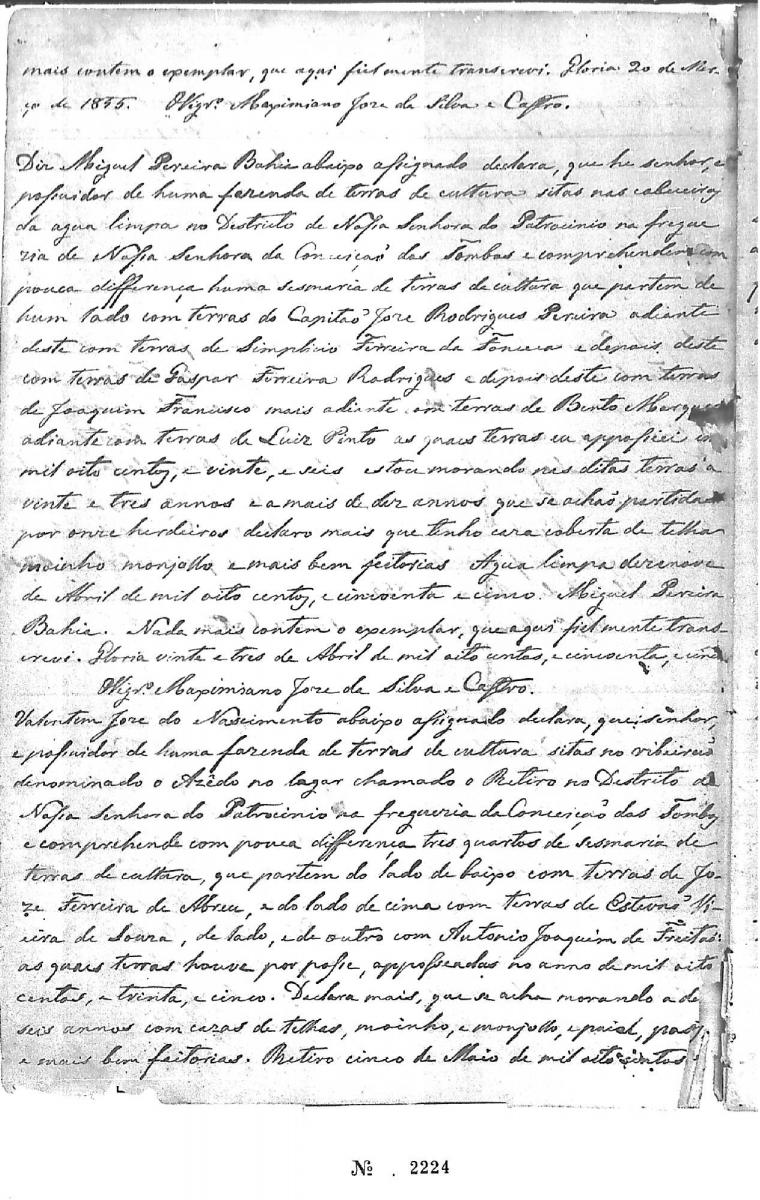 mais contem o exemplar, que aqui fielmente transcrevi. Gloria 20 de Mar-
ço de 1855. Vigr.º Maximiano Joze da Silva e Castro.
Diz Miguel Pereira Bahia abaixo assignado declara, que he senhor, e
possuidor de huma fazenda de terras de cultura sitas nas cabeceiras
da agua limpa no Destricto de Nossa Senhora do Patrocinio na fregue
zia de Nossa Senhora da Conceição dos Tombos e comprehendem com
pouca differença huma sesmaria de terras de cultura que partem de
hum lado com terras do Capitaõ Joze Rodrigues Pereira adiante
deste com terras de Simplicio Ferreira da Fonceca e depois deste
com terras de Gaspar Ferreira Rodrigues e depois deste com terras
de Joaquim Francisco mais adiante com terras de Bento Marques
adiante com terras de Luiz Pinto as quaes terras eu appossiei em
mil oito centos, e vinte, e seis estou morando nas ditas terras a
vinte e tres annos e a mais de dez annos que se achaõ partidas
por onze herdeiros declaro mais que tenho caza coberta de telha
moinho monjollo e mais bem feitorias Agua limpa dezenove
de Abril de mil oito centos, e cincoenta e cinco. Miguel Pereira
Bahia. Nada mais contem o exemplar, que aqui fielmente trans-
crevi. Gloria vinte e tres de Abril de mil oito centos, e cincoenta, e cinco
Vigr.º Maximiano Joze da Silva e Castro.
Valentem Joze do Nascimento abaixo assignado declara, que senhor,
e possuidor de huma fazenda de terras de cultura sitas no ribeiraõ
denominado o Azêdo no lugar chamado o Retiro no Destrito de
Nossa Senhora do Patrocinio na freguezia da Conceiçaõ dos Tombos
e comprehende com pouca differença tres quartos de sesmaria de
terras de cultura, que partem do lado de baixo com terras de Jo-
ze Ferreira de Abreu, e do lado de cima com terras de Estevaõ Vi-
eira de Souza, de lado, e de outro com Antonio Joaquim de Freitas
as quaes terras houve por posse, apposseadas no anno de mil oito
centos, e trinta, e cinco. Declara mais, que se acha morando a de
seis annos com cazas de telhas, moinho, e monjollo, e paiol, pasto,
e mais bem feitorias. Retiro cinco de Maio de mil oito centos
Nº . 2224